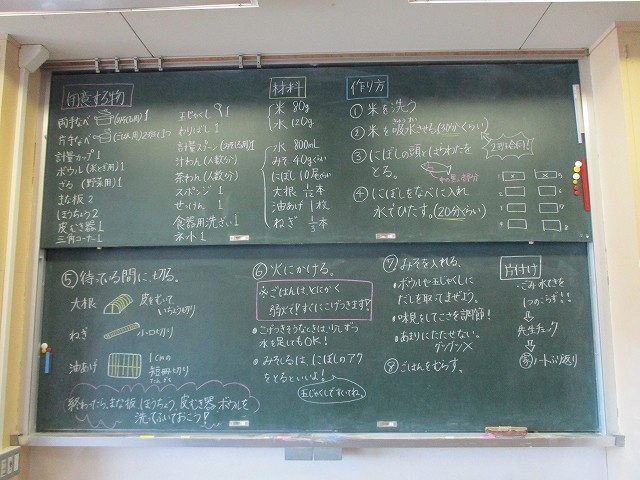 用意する物
両手なべ(みそ汁用)1
片手なべ(ごはん用)2班で1つ
計量カップ1
ボウル(米とぎ用)1
ざる(野菜用)1
まな板2
ほうちょう2
皮むき器1
三角コーナー1
玉じゃくし1
わりばし1
計量スプーン
汁わん(人数分)
茶わん(人数分)
スポンジ1
せっけん1
食器用洗ざい1
ネット1
材料
米 80g
水 120g
水 800mL
みそ 40gくらい
にぼし 10尾くらい
大根 1/12本
油あげ 1枚
ねぎ 1/3本
作り方
①米を洗う
②米を吸水させる(30分くらい)
③にぼしの頭とはらわたを
とる。
④にぼしをなべに入れ
水でひたす。(20分くらい)
⑤待っている間に、切る。
大根
皮をむいて
いちょう切り
ねぎ
小口切り
油あげ
1cmの
短冊切り
終わったら、まな板、ほうちょう、皮むき器、ボウルを
洗ってふいておこう!
⑥火にかける。
※ごはんは、とにかく
弱火で!すぐにこげつきます!
•こげつきそうなときは、少しずつ
水を足してもOK!
•みそしるは、にぼしのアク
をとるといいよ!
玉じゃくしですくってね。
⑦みそを入れる。
•ボウルや玉じゃくしに
だしを取ってまぜよう。
•味見をしてこさを調節!
•あまりにたたせない。
グツグツ×
⑧ごはんをむらす。
片付け
•ごみ、水てきを
1つものこらず!!
先生チェック
ノートふり返り